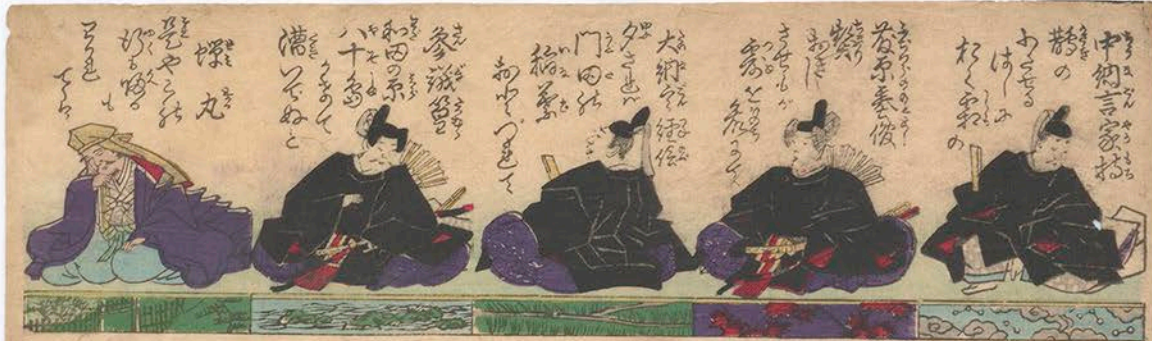 中納言家持
鵲の
わたせる
はしに
おく霜の
藤原基俊
契り
おきし
させもが
露を命にて
大納言經信
夕されば
門田の
稲葉
おとづれて
參議篁
和田の原
八十島
かけて
漕いでぬと
蝉丸
是やこの
行も帰る
も
わかれ
ては